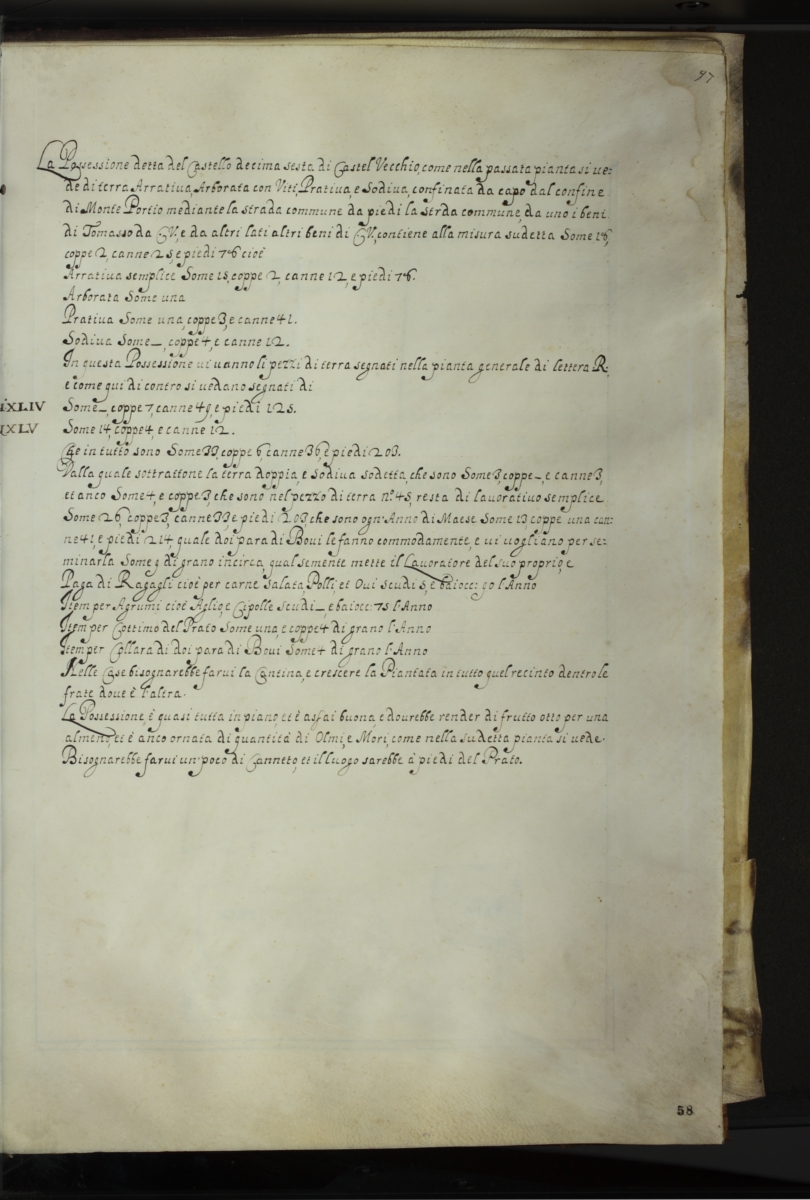 97
La Possessione detta del Castello decima sesta di Castel Vecchio, come nella passata pianta si ue:
de di terra Arratiua, Arborata con Viti, Pratiua, e Sodiua, confinata da capo dal confine
di Monte Portio mediante la strada commune da piedi la strda commune, da uno i beni
di Tomasso da CV, e da altri lati altri beni di CV, contiene alla misura sudetta Some 18,
coppe 2, canne 25, e piedi 76 cioè
Arratiua semplice Some 15, coppe 2, canne 12, e piedi 76.
Arborata Some una
Pratiua Some una, coppe 3, e canne 41.
Sodiua Some _, coppe 4, e canne 12.
In questa Possessione ui uanno li pezzi di terra segnati nella pianta generale di lettera R,
e come qui di contro si uedano segnati di
iXLIV Some _, coppe 7, canne 49, e piedi 125.
iXLV Some 14, coppe 4, e canne 12.
Che in tutto sono Some 33, coppe 6, canne 36, e piedi 203.
Dalla quale sottrattone la terra doppia, e sodiua sodetta, che sono Some 3, coppe _, e canne 3,
et anco Some 4, e coppe 3, che sono nel pezzo di terra n.º 45, resta di lauoratiuo semplice
Some 26, coppe 3, canne 33 e piedi 203, che sono ogn'Anno di Maese Some 13 coppe una can:
ne 41, e piedi 214, quale doi para di Boui le fanno commodamente, e ui uogliano per se:
minarla Some 9 di grano incirca, qual semente mette il Lauoratore del suo proprio, e
Paga di Ragagli cioè per carne salata, Polli, et Oui scudi 5, e baiocci 90 l'Anno
Item per Agrumi cioè Aglio, e Cipolle Scudi _, e baiocc: 75 l'Anno
Item per Cottimo del Prato Some una, e coppe 4 di grano l'Anno
Item per Collara di doi para di Boui Some 4 di grano l'Anno
Nelle Case bisognarebbe farui la Cantina, e crescere la Piantata in tutto quel recinto dentro le
frate doue è l'altra.
La Possessione, è quasi tutta in piano, et è assai buona, e dourebbe render di frutto otto per una
almeno, et è anco ornata di quantità di Olmi, e Mori, come nella sudetta pianta si uede.
Bisognarebbe farui un poco di Canneto, et il luogo sarebbe à piedi del Prato.
58